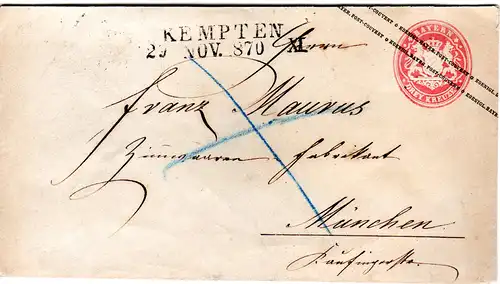 KEMPTEN
29 NOV. 870 XI.
Herrn
Franz Maurus
Zinnwaaren-Fabrikant
München.
Kaufingerstr.
BAYERN
DREI KREUZER
POST-COUVERT ✿ KOENIGL. BAYER. POST-COUVERT ✿ KOENIGL. BAYER.